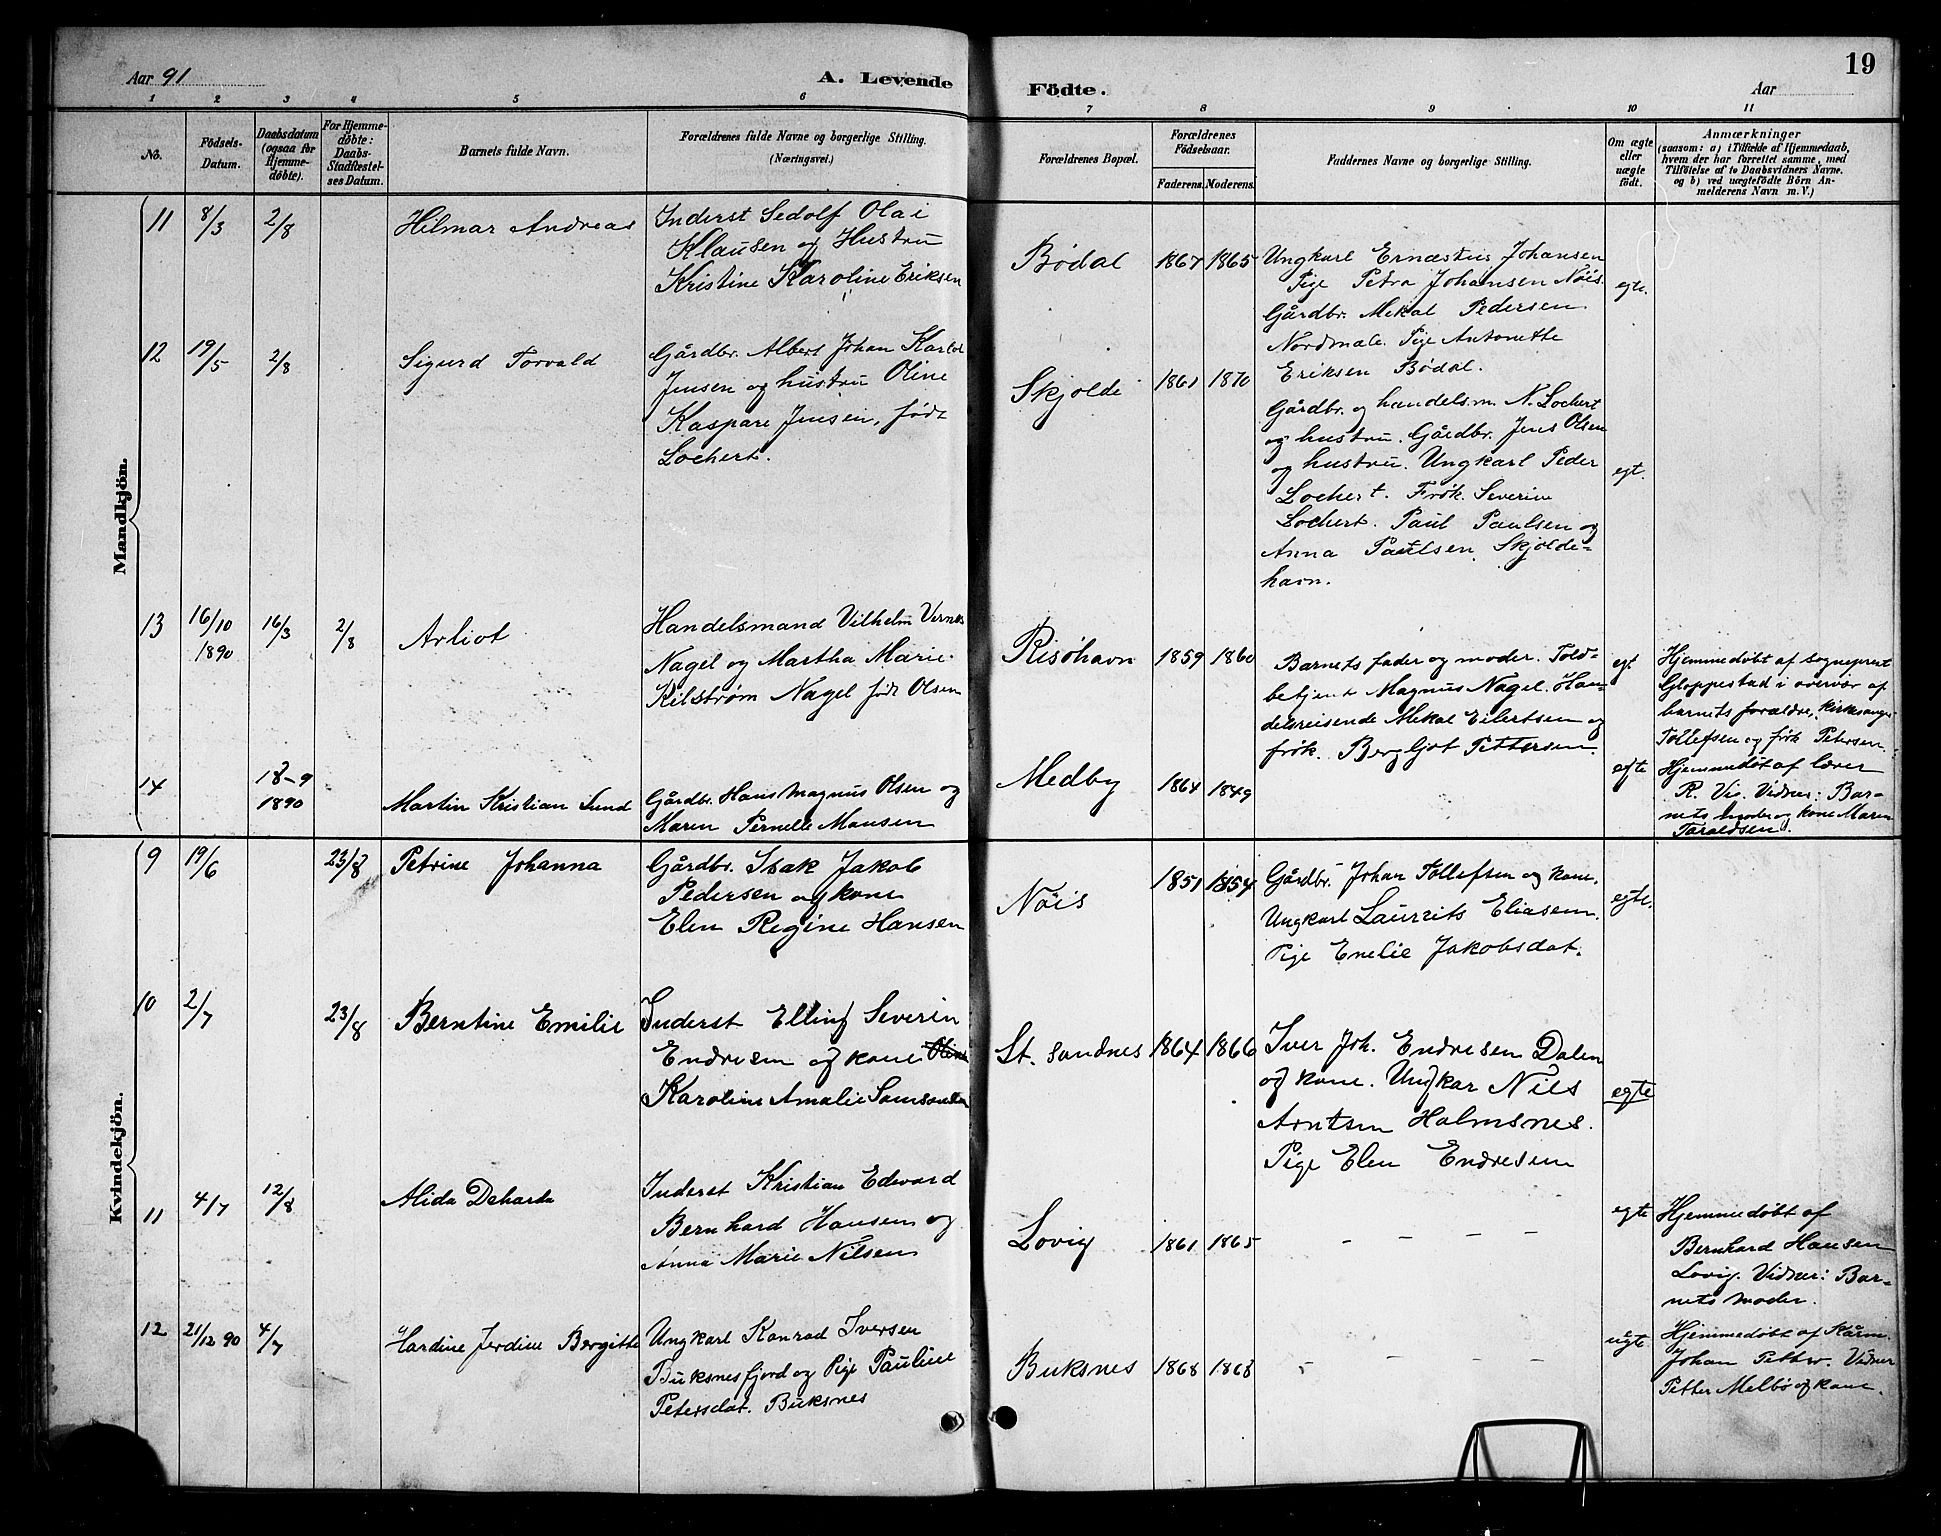 Aar 91
A. Levende
Födte.
Aar
19
1 2 3 4 5 6 7 8 9 10 11
No.
Födsels-
Datum.
Daabsdatum
(ogsaa for
Hjemme-
døbte).
For Hjemme-
døbte:
Daabs-
Stadfæstel-
ses Datum.
Barnets fulde Navn.
Forældrenes fulde Navne og borgerlige Stilling.
(Næringsvei.)
Forældrenes Bopæl.
Forældrenes
Födselsaar.
Faderens. Moderens.
Faddernes Navne og borgerlige Stilling.
Om ægte
eller
uægte
födt.
Anmærkninger
(saasom: a) i Tilfælde af Hjemmedaab,
hvem der har forrettet samme, med
Tilföielse af to Daabsvidners Navne.
og b) ved uægtefödte Börn An-
melderens Navn m. V.)
Mandkjön.
11 8/3 2/8 Hilmar Andreas
Inderst Sedolf Olai
Klausen og Hustru
Kristine Karoline Eriksen
Bødal 1867 1865
Ungkarl Ernæstus Johansen
Pige Petra Johansen Nöis.
Gårdbr. Mekal Pedersen
Nordmele. Pige Antonette
Eriksen Bødal.
egte.
12 19/5 2/8 Sigurd Torvald
Gårdbr. Albert Johan Karlot
Jensen og hustru Oline
Kaspare Jensen, født
Lochert.
Skjolde 1861 1870
Gårdbr. og handelsm. N. Lochert
og hustru. Gårdbr. Jens Olsen
og hustru. Ungkarl Peder
Lochert. Frøk. Severine
Lochert. Paul Paulsen og
Anna Paulsen. Skjolde-
havn.
egt.
13 16/10 1890 16/3 2/8 Arliot
Handelsmand Vilhelm Vernes
Nagel og Martha Marie
Kilstrøm Nagel født Olsen
Risøhavn 1859 1860
Barnets fader og moder. Told-
betjent Magnus Nagel. Han-
delsreisende Mekal Eilertsen og
frøk. Bergljot Pettersen.
egt
Hjemmedøbt af sogneprest
Gloppestad i overvær af
barnets forældre, kirkesanger
Tollefsen og frøk Petersen.
14 18-9 1890 Martin Kristian Lund
Gårdbr. Hans Magnus Olsen og
Maren Pernelle Monsen
Medby 1864 1849
egte
Hjemmedøbt af lærer
R. Vis. Vidner: Bar-
nets moder og kone Maren
Taraldsen.
Kvindekjön.
9 19/6 23/8 Petrine Johanna
Gårdbr. Isak Jakob
Pedersen og kone
Elen Regine Hansen
Nöis 1851 1854
Gårdbr. Johan Tollefsen og kone.
Ungkarl Laurits Eliasen.
Pige Enelie Jakobsdat.
egte.
10 2/7 23/8 Berntine Emilie
Inderst Elling Severin
Endresen og kone Oline
Karoline Amalie Samsonsen
St. Sandnes 1864 1866
Iver Joh. Endresen Dalen
og kone. Ungkar Nils
Arntsen Holmsnes.
Pige Elen Endresen
egte
11 4/7 12/8 Alida Deharda
Inderst Kristian Edvard
Bernhard Hansen og
Anna Marie Nilsen
Lovig 1861 1865
- - - -
egte
Hjemmedøbt af
Bernhard Hansen
Lovig. Vidner: Bar-
nets moder.
12 21/12 90 4/7 Hardine Jerdine Bergitte
Ungkarl Konrad Iversen
Buksnesfjord og Pige Pauline
Petersdat. Buksnes
Buksnes 1868 1868
- - - -
ugte
Hjemmedøbt af
Johan Petter. Vidner
Petter Melbø og kone.